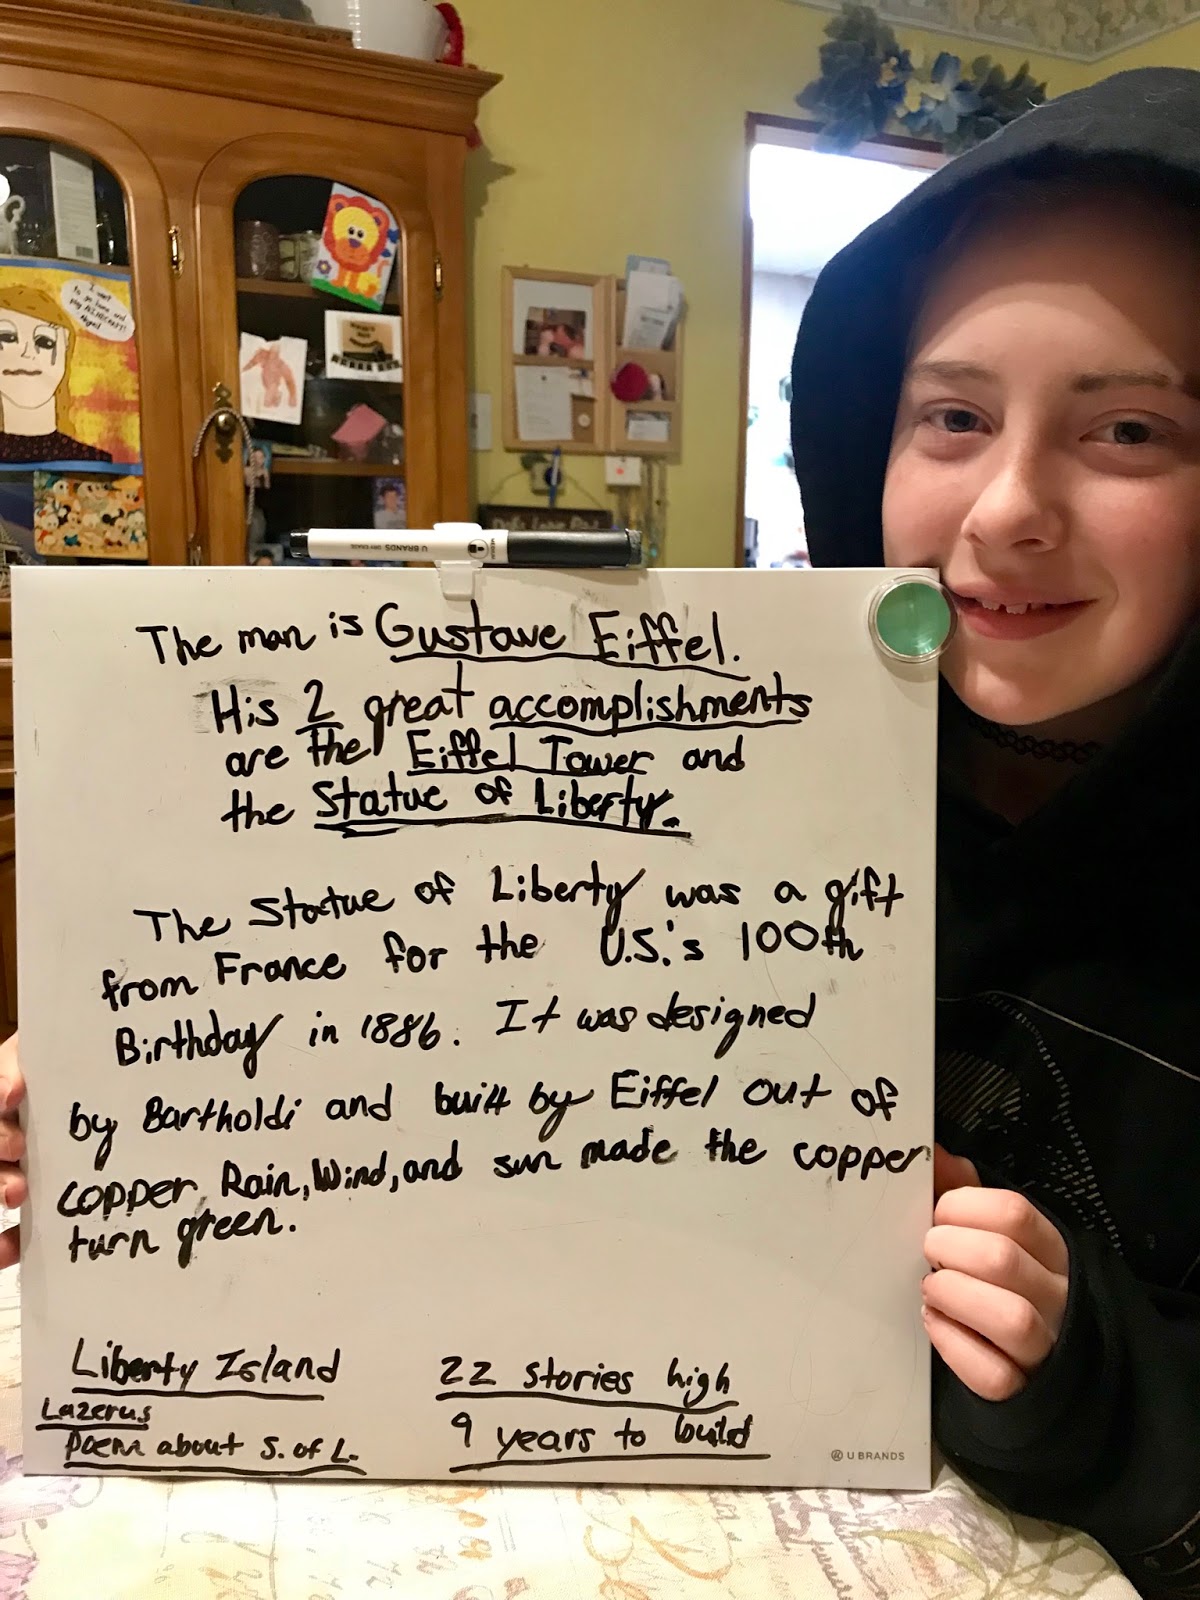 I want
to go home and
play MINECRAFT!
U BRANDS
DRY ERASE
MEDIUM
The man is Gustave Eiffel.
His 2 great accomplishments
are the Eiffel Tower and
the Statue of Liberty.
The Statue of Liberty was a gift
from France for the U.S.'s 100th
Birthday in 1886. It was designed
by Bartholdi and built by Eiffel out of
copper. Rain, Wind, and sun made the copper
turn green.
Liberty Island
Lazerus
Poem about S. of L.
22 stories high
9 years to build
U BRANDS